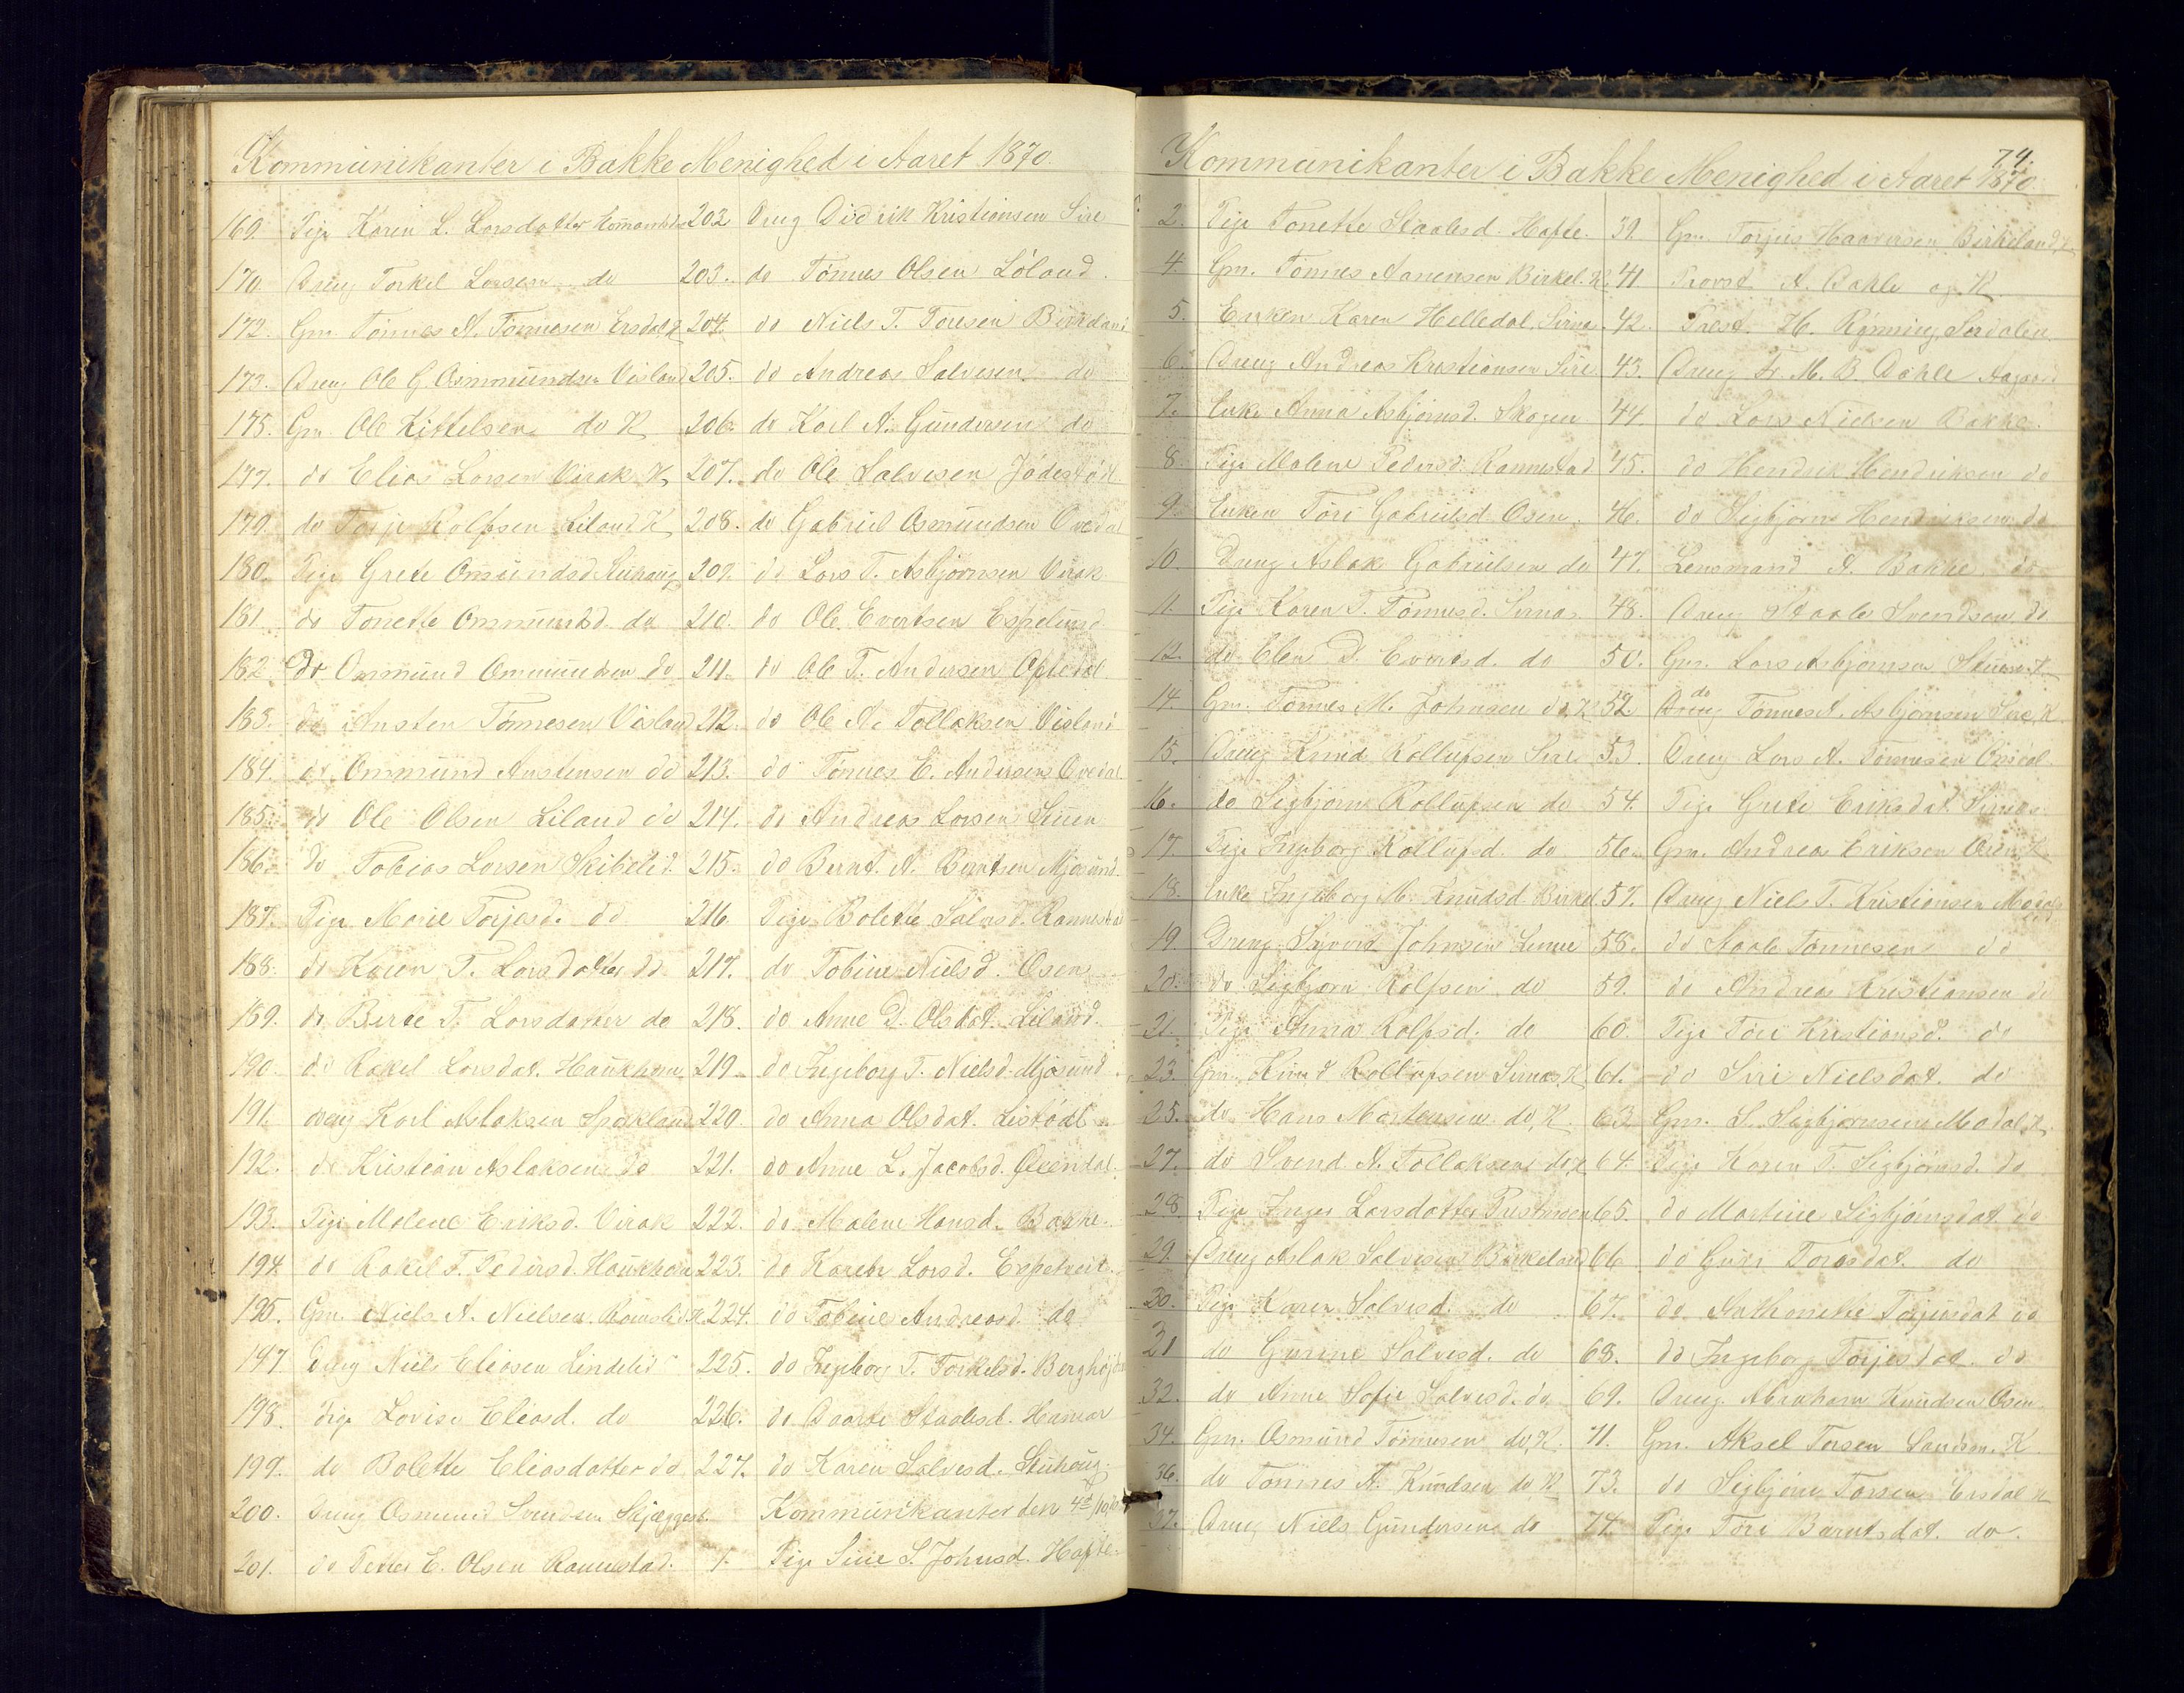 Kommunikanter i Bakke Menighed i Aaret 1870.
169. Pige Karin L. Larsdatter
170. Dreng Torkel Larsen do
172. Gm. Tönnes A. Tönnesen Ersdal, K
173. Dreng Ole G. Ommundsen Visland
175. Gm. Ole Kittelsen do K
177. do Elias Larsen Virak K
179. do Torje Rolfsen Liland K
180. Pige Grete Omundsd.
181. do Tonette Ommundsd. do
182. Dr Ommund Ommundsen do
183. do Austen Tönnesen Visland
184. do Ommund Austensen do
185. do Ole Olsen Liland do
186. do Tobias Larsen Skibelid.
187. Pige Marie Torjesd. do
188. do Karen T. Larsdatter do
189. do Berte T. Larsdatter do
190. do Rakel Larsdat. Haukhom
191. dreng Karl Aslaksen
192. do Kristian Aslaksen do
193. Pige Malene Eriksd. Virak
194. do Rakel T. Pedersd. Haukhom
195. Gm. Niels A. Nielsen
197. Dreng Niels Eliasen Lindelid
198. Pige Lovise Eliasd. do
199. do Bolette Eliasdatter do
200. Dreng Osmund Svendsen
201. do Petter E. Olsen Rannestad.
202 Dreng Didrik Kristiansen Sire
203. do Tönnes Olsen Löland.
204. do Niels T. Toresen Birkeland
205. do Andreas Salvesen do
206. do Karl A. Gundersen do
207. do Ole Salvesen Jödestöl
208. do Gabriel Osmundsen Ovedal
209. do Lars T. Asbjörnsen Virak
210. do Ole Evertsen Espelund
211. do Ole T. Andersen Oftedal
212. do Ole A. Tollaksen Visland
213. do Tönnes E. Andersen Ovedal
214. do Andreas Larsen Lunen
215. do Bernt A. Berntsen Mjösund.
216 Pige Bolette Salvesd. Rannestad
217. do Tobine Nielsd. Osen
218. do Anne D. Olsdat. Liland.
219 do Ingeborg T. Nielsd. Mjösund
220 do Anna Olsdat. Listödl
221. do Anne L. Jacobsd. Qvendal
222. do Malene Hansd. Bakke.
223. do Karen Larsd. Espetveit.
224. do Tobine Andreasd. do
225. do Ingeborg T. Torkelsd.
226. do Staalesd. Hamar
227. do Karen Salvesd.
Kommunikanter den
1. Pige Sirie S. Johnsd. Hafte.
74.
Kommunikanter i Bakke Menighed i Aaret 1870.
2. Pige Tonette Staalesd. Hafte.
4. Gm. Tönnes Aanensen Birkel. K.
5. Enken Karen Helledal, Sirnes.
6. Dreng Andreas Kristiansen Sire
7. Enke Anna Asbjörnsd. Skogen
8. Pige Malene Pedersd. Rannestad
9. Enken Töri Gabrielsd. Osen.
10. Dreng Aslak Gabrielsen do
11. Pige Karen T. Tönnesd. Sirnes.
12. do Elen D. Evensd. do
14. Gm. Tönnes M. Johnsen do, K
15. Dreng Knud Rollupsen Sire
16. do Sigbjörn Rollupsen do
17. Pige Ingborg Rollupsd. do
18. Enke Ingeborg M. Knudsd. Birkel.
19. Dreng Johnsen Lunne
20. do Sigbjörn Rolfsen do
21. Pige Anna Rolfsd. do
23. Gm. Knud Rollupsen Sirnes, K
25. do Hans Mortensen do, K.
27. do Svend A. Tollaksen do, K
28 Pige Inger Larsdatter
29. Dreng Aslak Salvesen Birkeland
30. Pige Karen Salvesd. do
31 do Gunine Salvesd. do
32. do Anne Sofie Salvesd. do
34. Gm. Osmund Tönnesen do, K.
36. do Tönnes A. Knudsen do K
37. Dreng Niels Gundersen do
39. Gm. Torjus Haaversen Birkeland, K
41. Provst A. Dahle og K
42. Prest H. Rynning, Sirdalen.
43. Dreng Fr. M. B. Dahle
44. do Lars Nielsen Bakke.
45. do Hendrik Hendriksen do
46. do Sigbjörn Hendriksen do
47. Lensmand A. Bakke do
48. Dreng Staale Svendsen do
50. Gm. Lars Asbjörnsen
52 do Tönnes A. Asbjörnsen Sire, K
53. Dreng Lars A. Tönnesen
54. Pige Grete Eriksdat. Sirnes
56. Gm. Andreas Eriksen Osen K
57. Dreng Niels T. Kristiansen Modal
58. do Staale Tönnesen do
59. do Andreas Kristiansen do
60. Pige Töri Kristiansd. do
61. do Siri Nielsdat. do
63 Gm. S. Sigbjörnsen Modal, K
64. Pige Karen T. Sigbjörnsd. do
65. do Martine Sigbjörnsdat. do
66. do Guri Toresdat. do
67. do Anthonette Torjusdat do
68. do Ingeborg Torjesdat. do
69. Dreng Abraham Knudsen Osen
71. Gm. Aksel Torsen K
73. do Sigbjörn Torsen Ersdal K
74. Pige Töri Barntsdat. do.